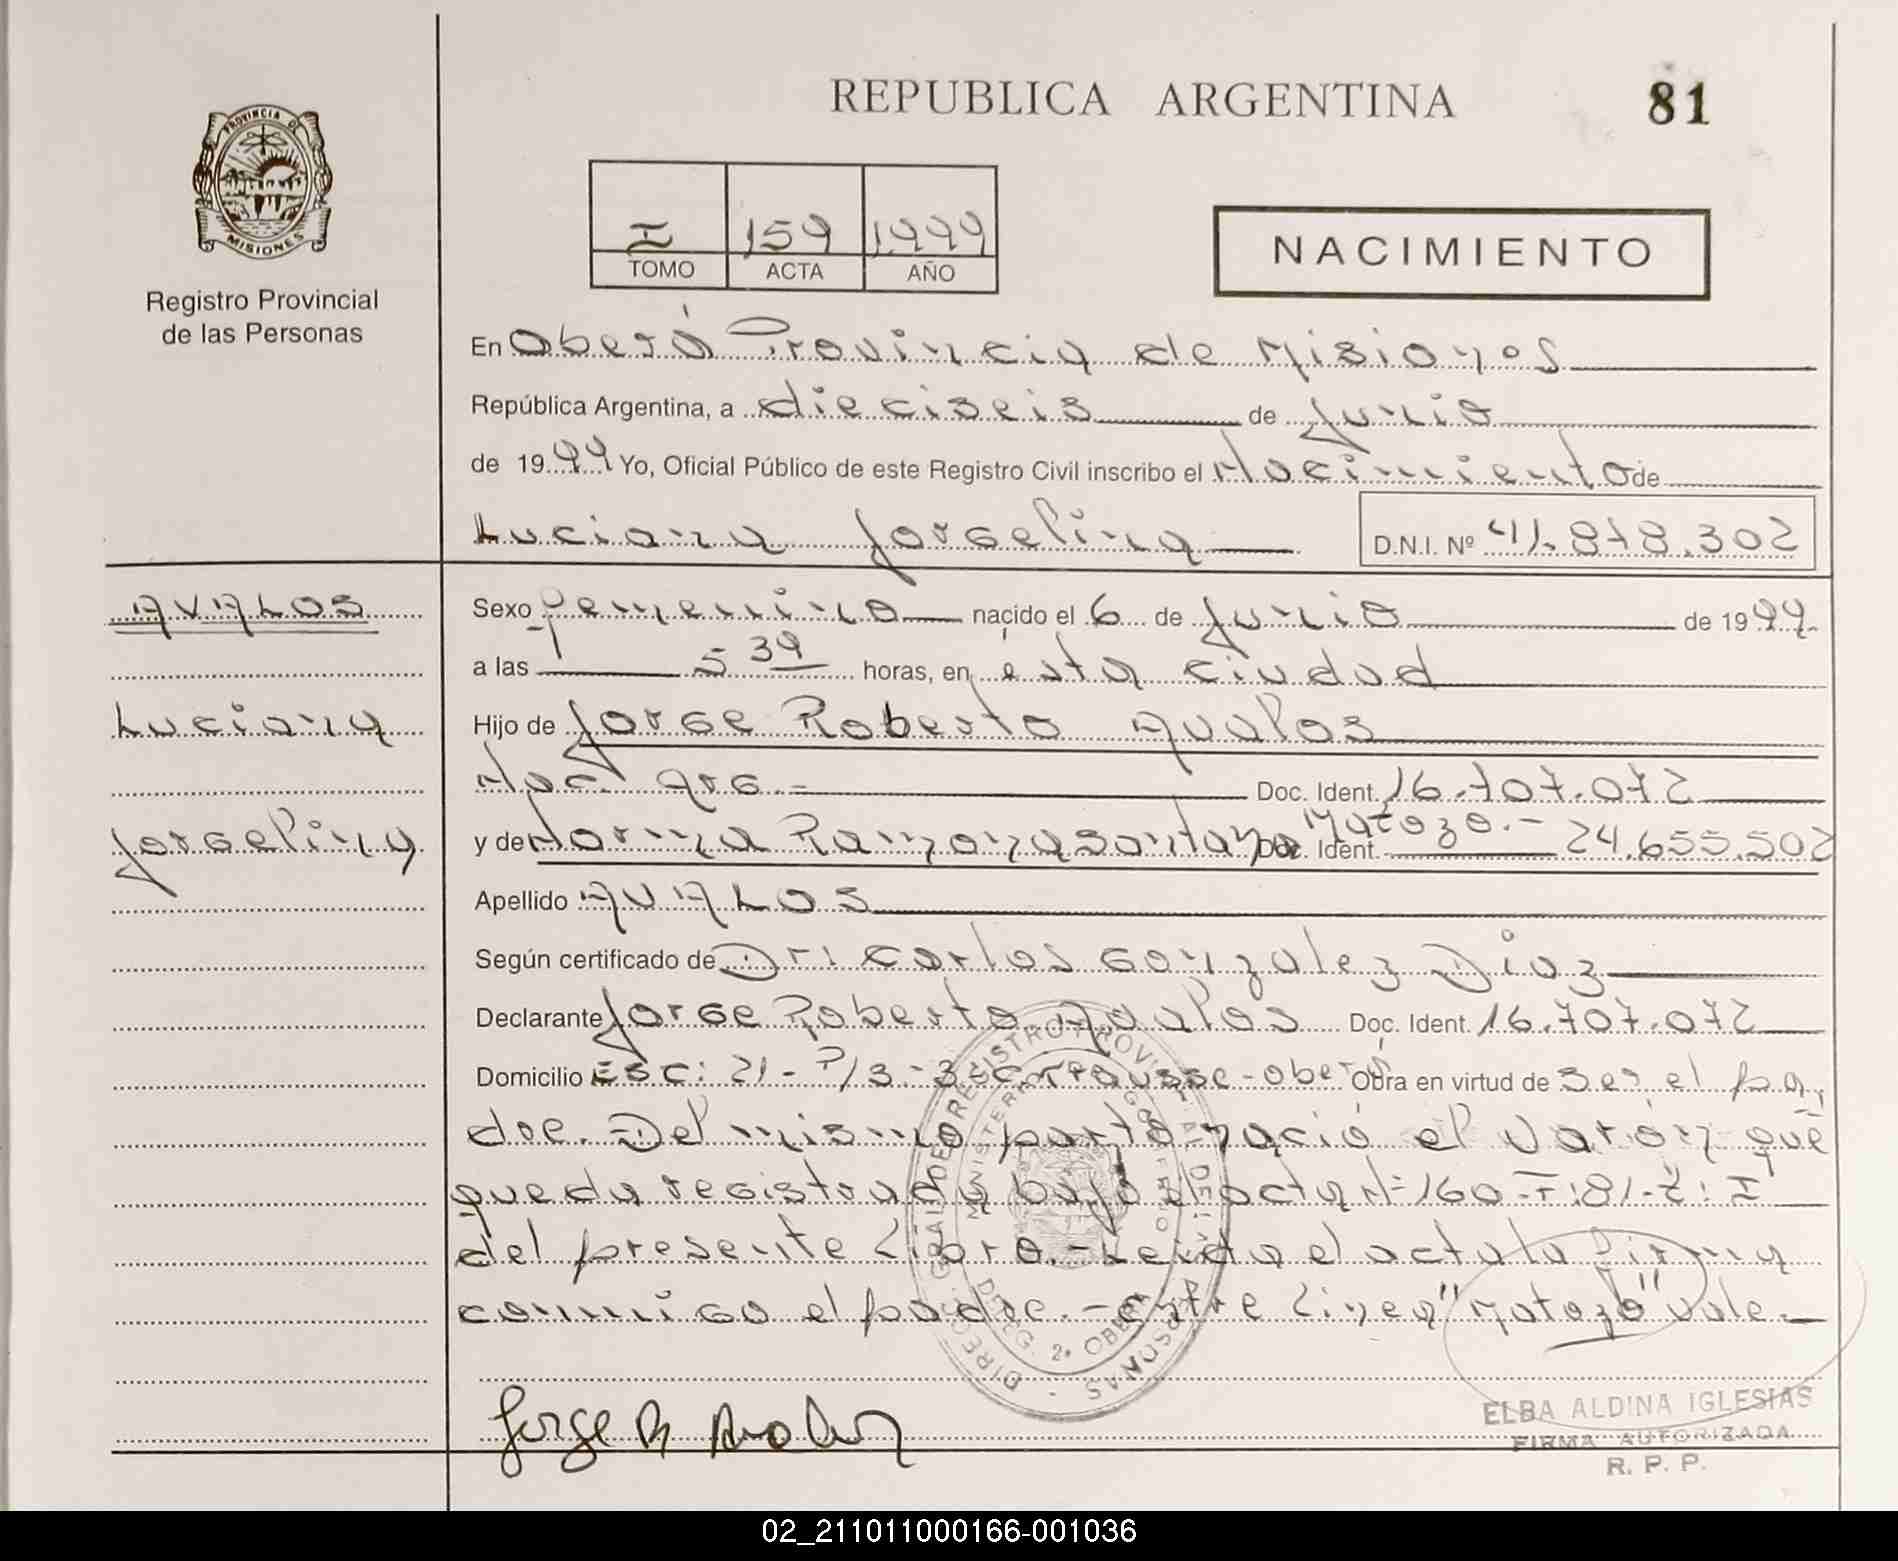 REPUBLICA ARGENTINA
81
PROVINCIA DE
MISIONES
Registro Provincial
de las Personas
I 159 1999
TOMO ACTA AÑO
NACIMIENTO
En Oberá Provincia de Misiones
República Argentina, a dieciseis de Junio
de 1999 Yo, Oficial Público de este Registro Civil inscribo el Nacimiento de
Luciana Jorgelina D.N.I. Nº 41.878.302
AVALOS
Luciana
Jorgelina
Sexo Femenino nacido el 6 de Junio de 1999.
a las 5 39 horas, en ésta ciudad
Hijo de Jorge Roberto Avalos
Nac. arg.= Doc. Ident. 16.707.072
y de Norma Ramona Santana Matozo.- Doc. Ident. 24.655.502
Apellido AVALOS
Según certificado de Dr: Carlos Gonzalez Diaz
Declarante Jorge Roberto Avalos Doc. Ident. 16.707.072
Domicilio Esc: 21 - P/3 - 328 - Oberá Obra en virtud de ser el pa
dre. Del mismo parto nació el varón que
queda registrado bajo el acta Nº 160-F:81-T:I
del presente Libro.- Leida el acta la firma
conmigo el padre.- entre linea "Matozo" vale.-
Jorge R Avalos
DIREC. GRAL. DE REGISTRO PROVINCIAL DE LAS PERSONAS
MINISTERIO DE GOBIERNO
DELEG. 2ª OBERA
ELBA ALDINA IGLESIAS
FIRMA AUTORIZADA
R. P. P.
02_211011000166-001036